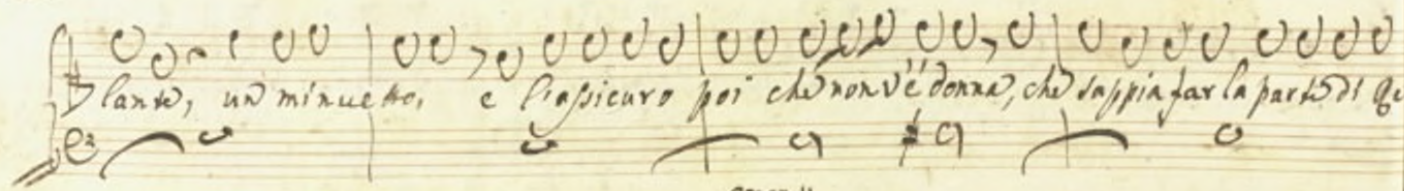 lante, un minuetto, e l'assicuro poi che non v'è donna, che sappia far la parte di